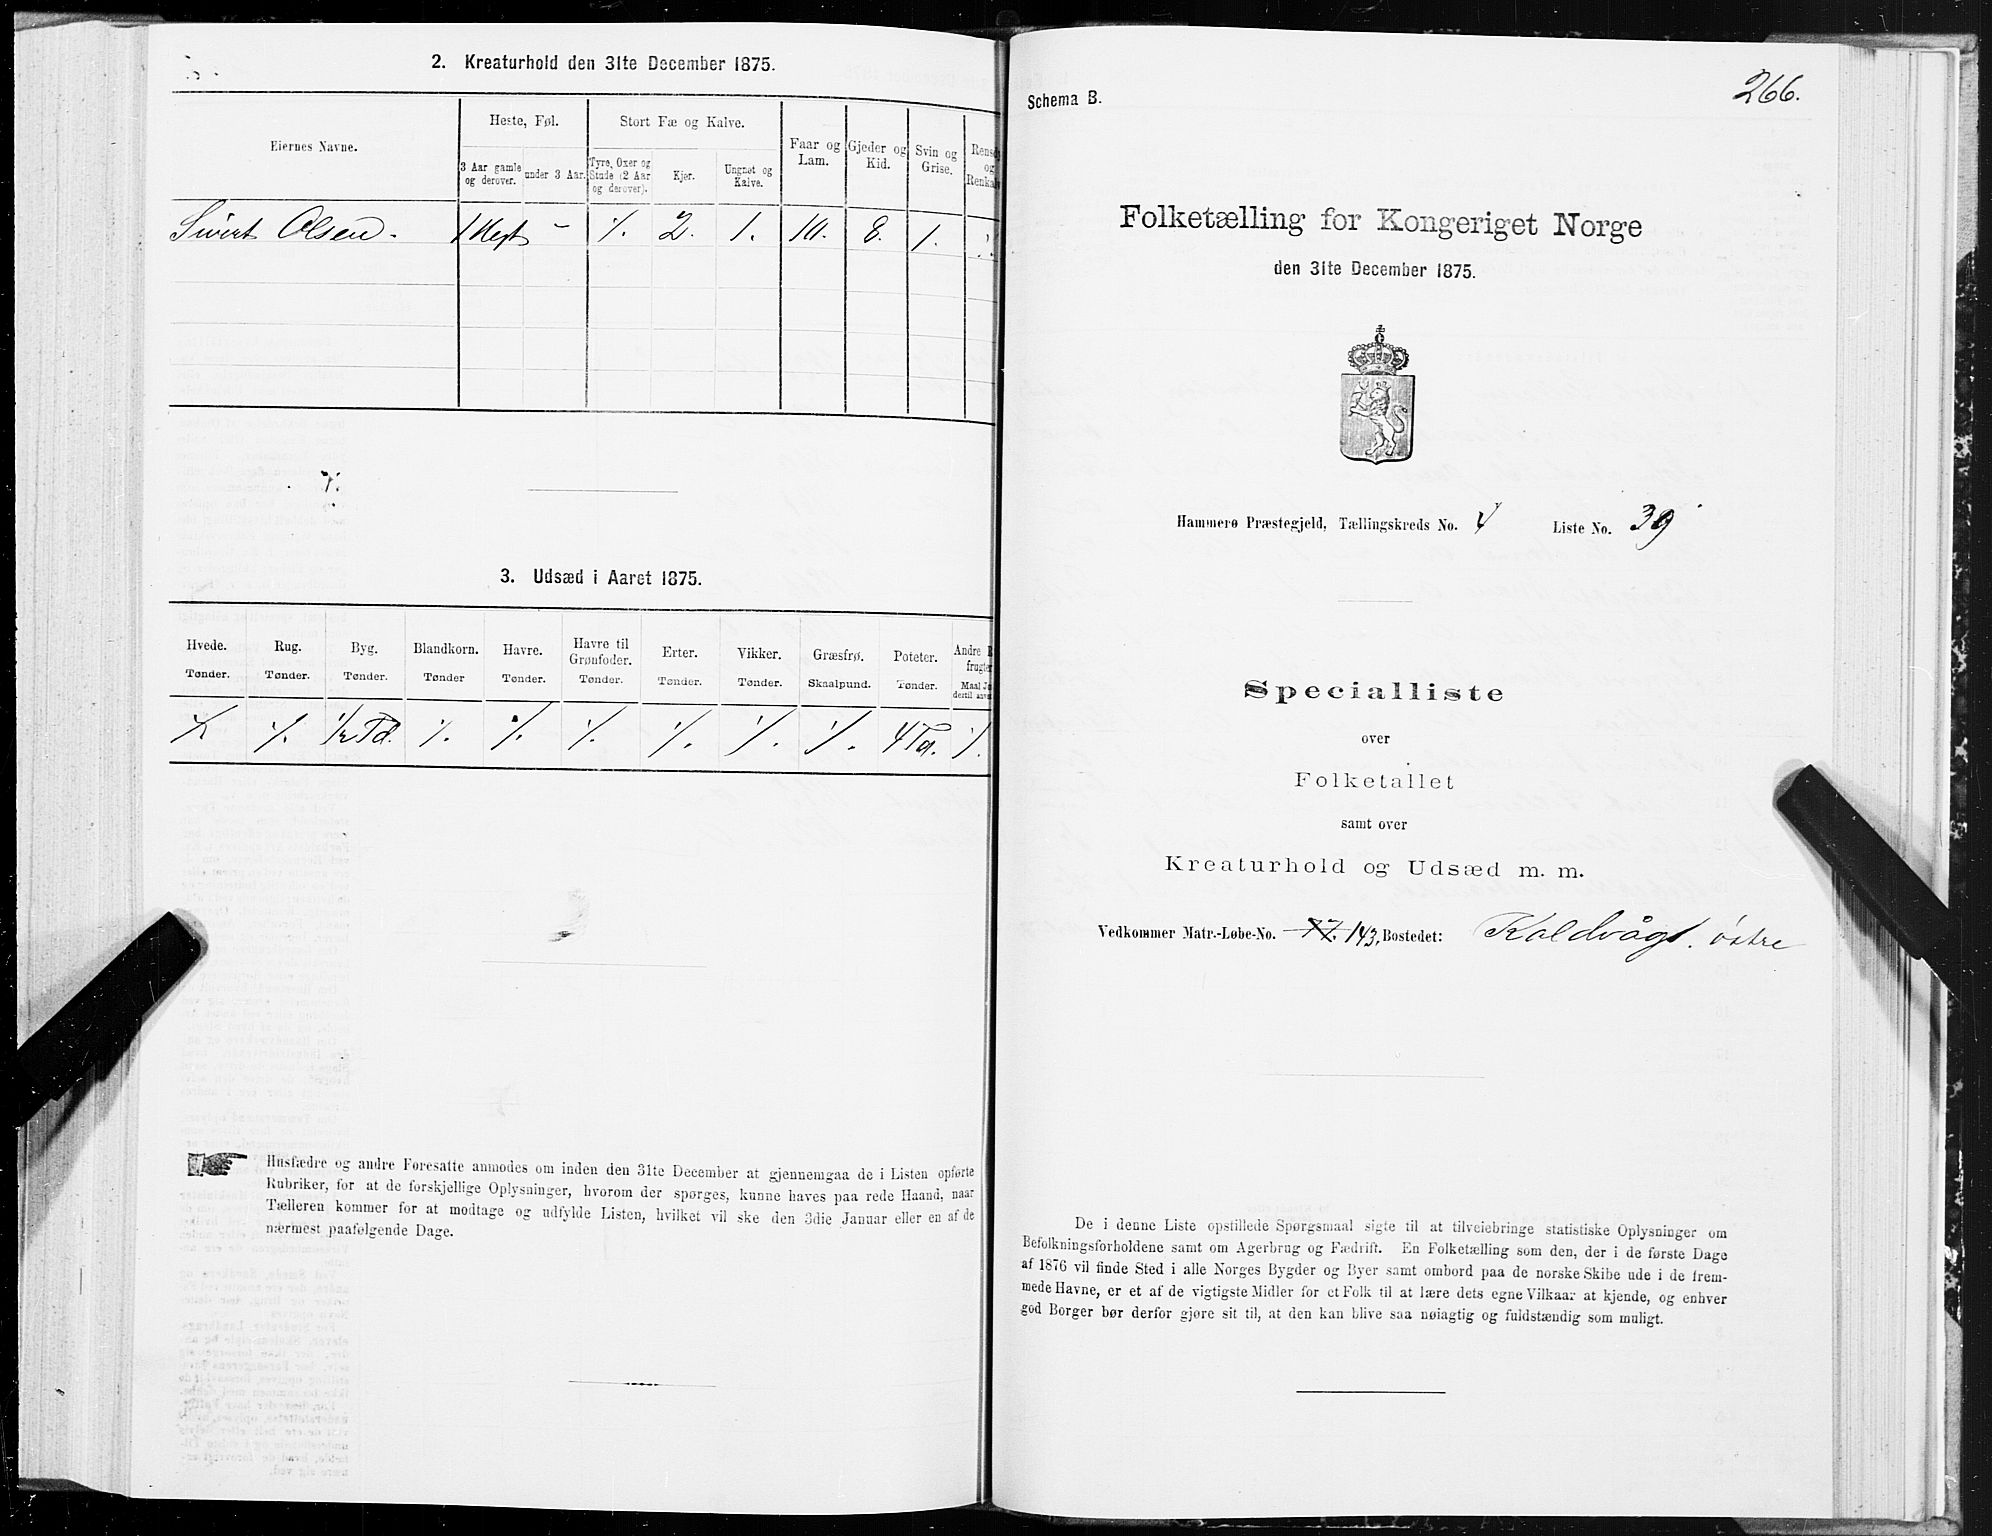 2. Kreaturhold den 31te December 1875.
Eiernes Navne.
Heste, Føl.
Stort Fæ og Kalve.
Faar og Lam.
Gjeder og Kid.
Svin og Grise.
3 Aar gamle og derover.
under 3 Aar.
Tyre, Oxer og Stude (2 Aar og derover).
Kjer.
Ungnøt og Kalve.
Sivert Olsen. 1 Hest - ./. 2. 1. 10. 8. 1.
3. Udsæd i Aaret 1875.
Hvede. Rug. Byg. Blandkorn. Havre. Havre til Grønfoder. Erter. Vikker. Græsfrø. Poteter. Andre
Tønder. Tønder. Tønder. Tønder Tønder. Tønder. Tønder. Tønder. Skaalpund. Tønder.
./. ./. ½ Td. ./. ./. ./. ./. ./. ./. 4 Td. ./.
Husfædre og andre Foresatte anmodes om inden den 31te December at gjennemgaa de i Listen opførte
Rubriker, for at de forskjellige Oplysninger, hvorom der spørges, kunne haves paa rede Haand, naar
Tælleren kommer for at modtage og udfylde Listen, hvilket vil ske den 3die Januar eller en af de
nærmest paafølgende Dage.
266.
Schema B.
Folketælling for Kongeriget Norge
den 31te December 1875.
Hammerø Præstegjeld, Tællingskreds No. 4 Liste No. 39
Specialliste
over
Folketallet
samt over
Kreaturhold og Udsæd m. m.
Vedkommer Matr.-Løbe-No. 77. 143, Bostedet: Kaldvåg. östre
De i denne Liste opstillede Spørgsmaal sigte til at tilveiebringe statistiske Oplysninger om
Befolkningsforholdene samt om Agerbrug og Fædrift. En Folketælling som den, der i de første Dage
af 1876 vil finde Sted i alle Norges Bygder og Byer samt ombord paa de norske Skibe ude i de frem-
mede Havne, er et af de vigtigste Midler for et Folk til at lære dets egne Vilkaar at kjende, og enhver
god Borger bør derfor gjøre sit til, at den kan blive saa nøiagtig og fuldstændig som muligt.